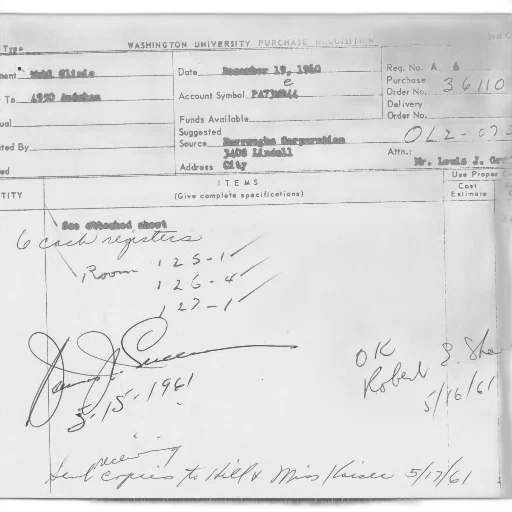 Type
WASHINGTON UNIVERSITY PURCHASE REQUISITION
3rd
ment Clinic
Date December 19, 1960
Req. No. A 6
Purchase
Order No. 36110
To 4950 Audubon
Account Symbol
Delivery
Order No.
ual
Funds Available
Suggested
Source Burroughs Corporation
OL2-075
ted By
3408 Lindell
Attn.:
Mr. Louis J.
ed
Address City
TITY
ITEMS
(Give complete specifications)
Use Proper
Cost
Estimate
See attached sheet
6 cash registers
Room 125-1
126-4
127-1
James J.
5-15-1961
OK
Robert E.
5/16/61
receiving
Sent copies to Hill & Miss Kaiser 5/17/61